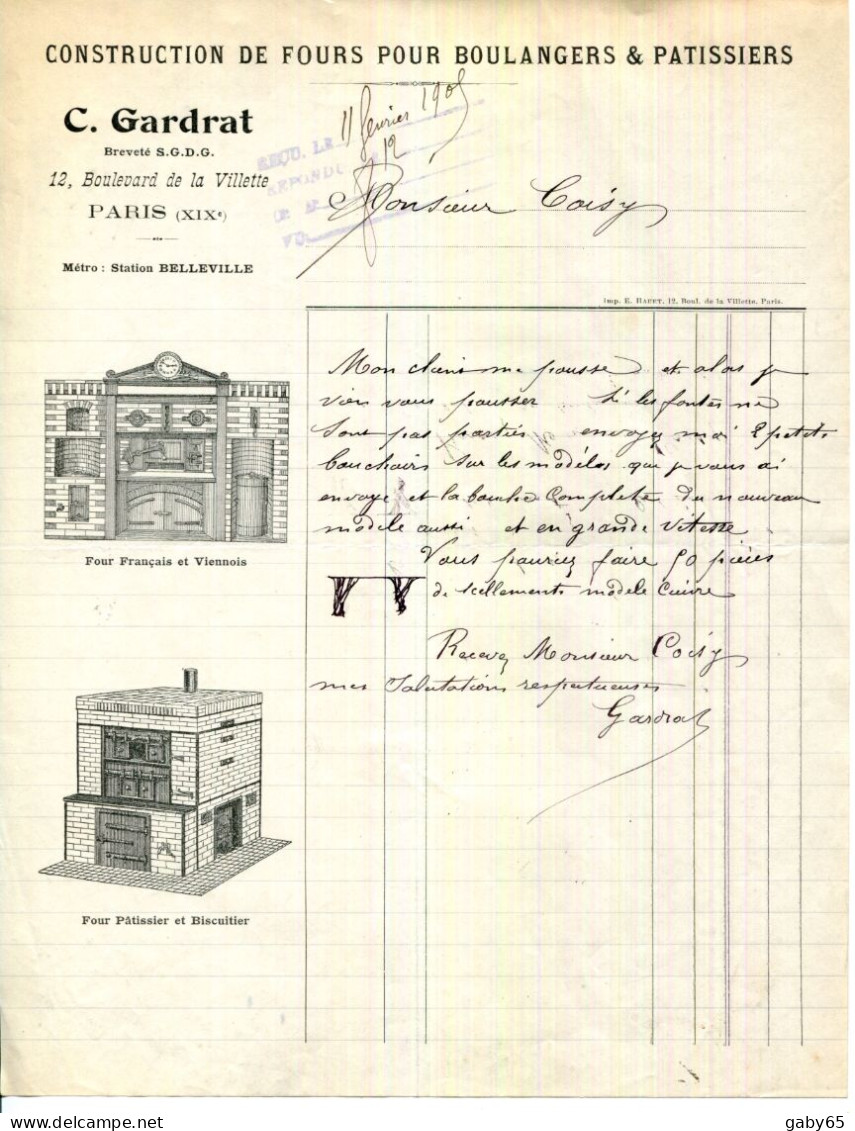 CONSTRUCTION DE FOURS POUR BOULANGERS & PATISSIERS
C. Gardrat
Breveté S.G.D.G.
12, Boulevard de la Villette
PARIS (XIXe)
Métro : Station BELLEVILLE
11 fevrier 190
12
REÇU. LE
REPONDU
Monsieur Coisy
Imp. E. HAUET, 12, Boul. de la Villette, Paris.
Mon client me pousse et alors je
vien vous pousser Si les fontes ne
sont pas parties envoyez moi 2 petits
bouchoirs sur les modèles que je vous ai
envoyé et la bouche complete du nouveau
modèle aussi et en grande vitesse
Vous pouriez faire 50 pièces
de scellements modele Cuivre
Recevez Monsieur Coisy
mes Salutations respectueuses
Gardrat
Four Français et Viennois
Four Pâtissier et Biscuitier
delcampe.net
gaby65